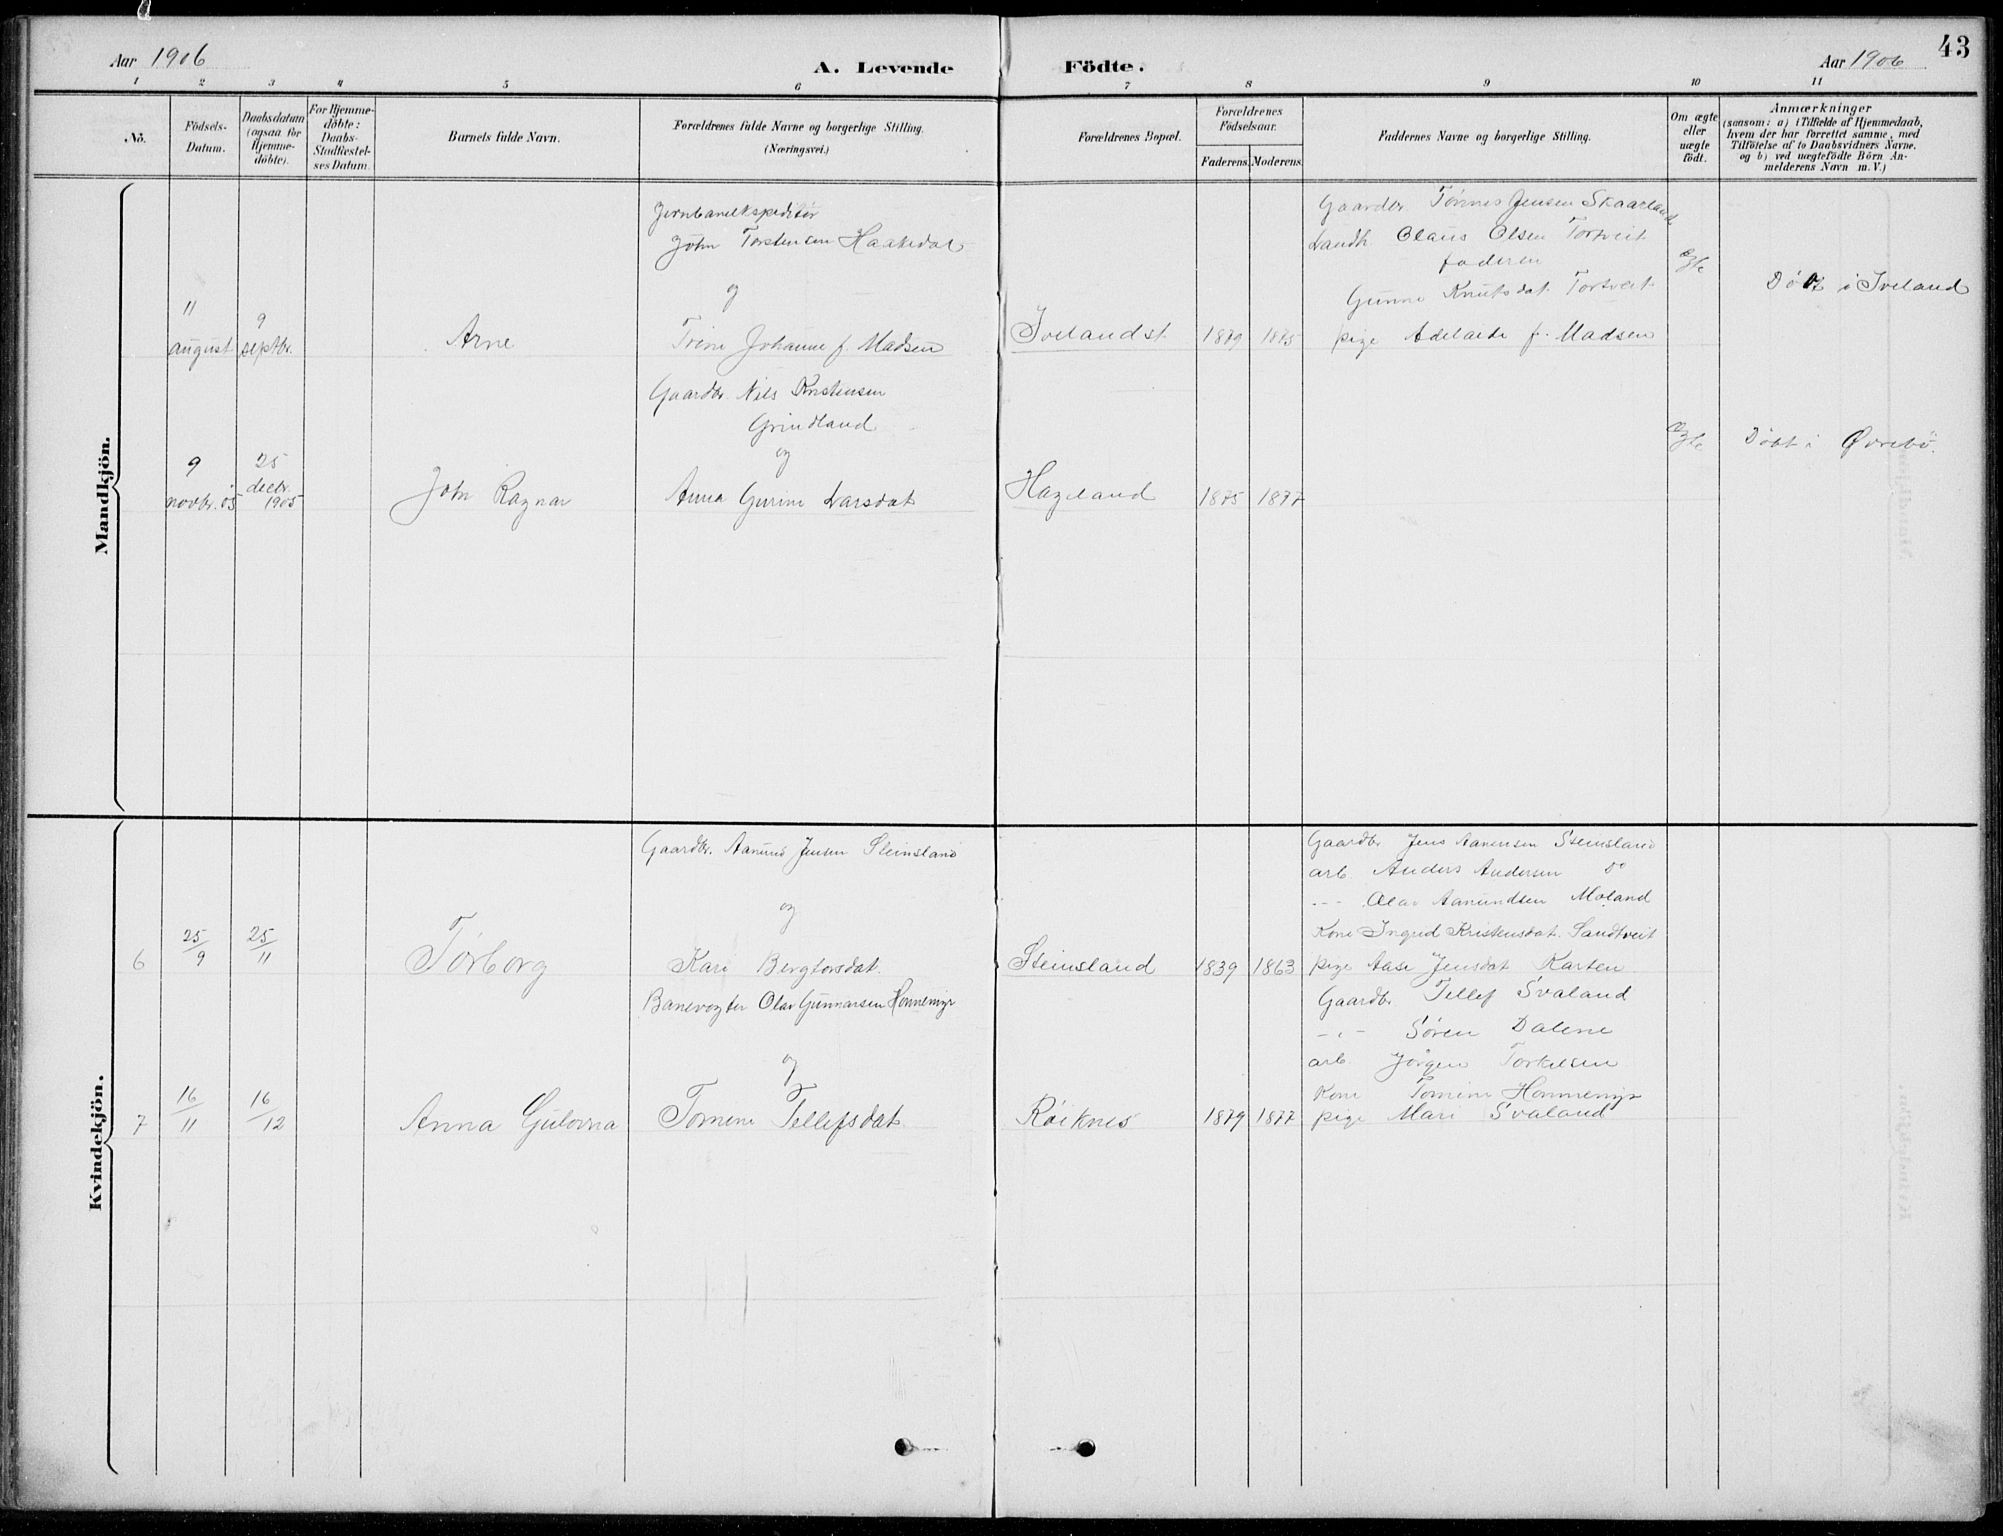 Aar 1906
A. Levende Födte.
Aar 1906
43
1 2 3 4 5 6 7 8 9 10 11
No.
Födsels-Datum.
Daabsdatum (ogsaa for Hjemme-döbte).
For Hjemme-döbte: Daabs-Stadfæstel-ses Datum.
Barnets fulde Navn.
Forældrenes fulde Navne og borgerlige Stilling.
(Næringsvei.)
Forældrenes Bopæl.
Forældrenes Födselsaar.
Faderens. Moderens.
Faddernes Navne og borgerlige Stilling.
Om ægte eller uægte födt.
Anmærkninger
(saasom: a) i Tilfælde af Hjemmedaab,
hvem der har forrettet samme, med
Tilföielse af to Daabsvidners Navne.
og b) ved uægtefödte Börn An-
melderens Navn m. V.)
Mandkjön.
11 august
9 septbr.
Arne
Jernbaneekspeditör
John Torstensen Haakedal
og
Trine Johanne f. Madsen
Ivelandst.
1879 1875
Gaardbr Tönnes Jensen Skaarland
Landh. Claus Olsen Tortveit
faderen
Gunne Knutsdat. Tortveit
pige Adelaide f. Madsen
ægte
Döbt i Iveland
9 novbr. 05
25 decbr. 1905
John Ragnar
Gaardbr. Nils Kristensen
Grindland
og
Anna Gurine Larsdat
Hageland
1875 1877
ægte
Döbt i Øvrebö.
Kvindekjön.
6
25/9
25/11
Torborg
Gaardbr. Aanund Jensen Steinsland
og
Kari Bergtorsdat.
Steinsland
1839 1863
Gaardbr Jens Aanensen Steinsland
arb Anders Andersen do
--- Olav Aanundsen Moland
Kone Ingrid Kristensdat. Sandtveit
pige Aase Jensdat Karten
7
16/11
16/12
Anna Gulovna
Banevogter Olav Gunnarsen Honnemyr
og
Tomene Tellefsdat
Röiknes
1879 1877
Gaardbr. Tellef Svaland
-"- Sören Dalene
arb Jörgen Torkelsen
Kone Tomine Honnemyr
pige Mari Svaland